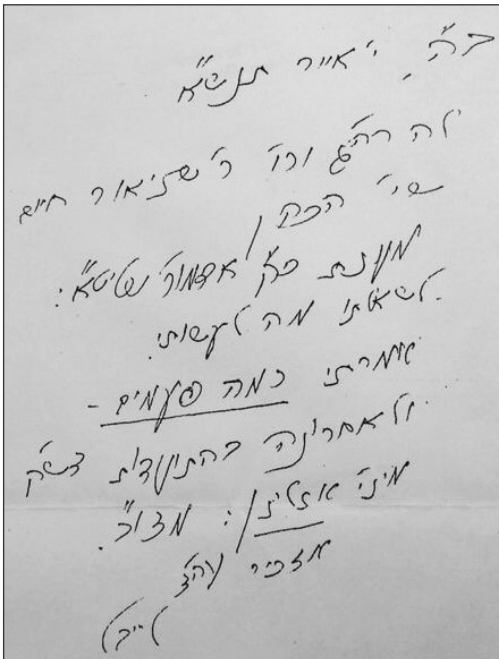 ב"ה, י' אייר תנש"א
ר' שניאור חיים
שי'
מענת כ"ק אדמו"ר שליט"א:
לשאלתי מה לעשות.
אמרתי כמה פעמים -
ולאחרונה בהתועדות דש"ק
מיני' אזלינן: מצו"ב.
אזכיר עה"צ